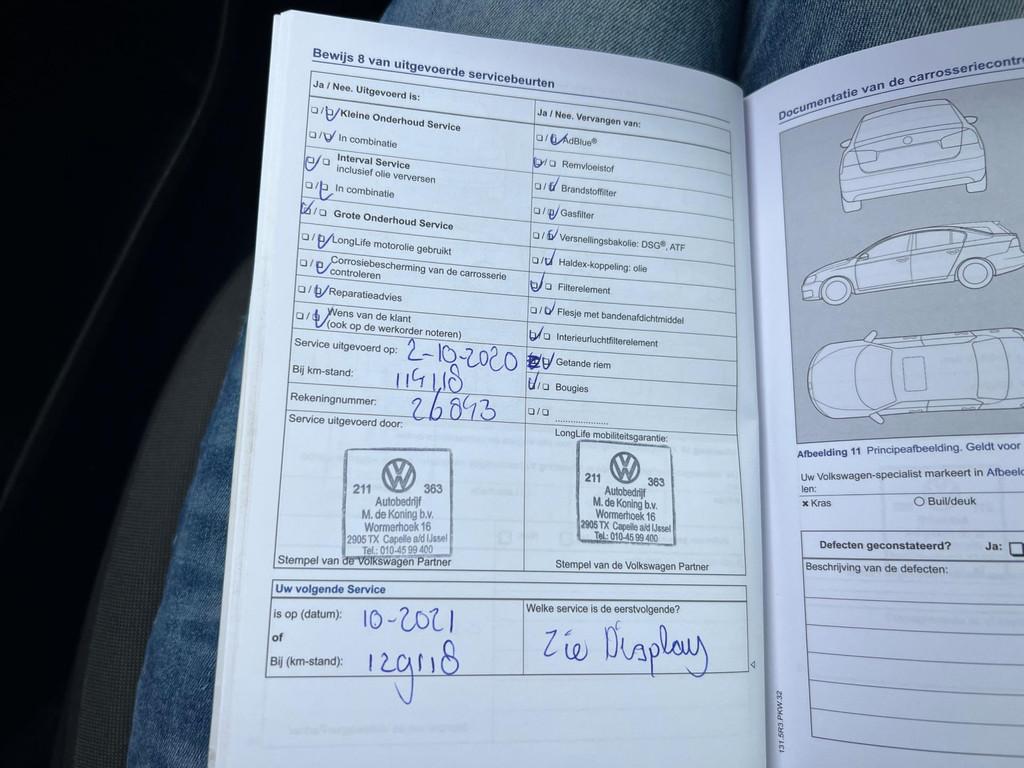 Bewijs 8 van uitgevoerde servicebeurten
Ja / Nee. Uitgevoerd is:
Kleine Onderhoud Service
In combinatie
Interval Service
inclusief olie verversen
In combinatie
Grote Onderhoud Service
LongLife motorolie gebruikt
Corrosiebescherming van de carrosserie
controleren
Reparatieadvies
Wens van de klant
(ook op de werkorder noteren)
Service uitgevoerd op: 2-10-2020
Bij km-stand: 114118
Rekeningnummer: 26843
Service uitgevoerd door:
211 363
Autobedrijf
M. de Koning b.v.
Wormerhoek 16
2905 TX Capelle a/d IJssel
Tel.: 010-45 99 400
Stempel van de Volkswagen Partner
Ja / Nee. Vervangen van:
AdBlue®
Remvloeistof
Brandstoffilter
Gasfilter
Versnellingsbakolie: DSG®, ATF
Haldex-koppeling: olie
Filterelement
Flesje met bandenafdichtmiddel
Interieurluchtfilterelement
Getande riem
Bougies
LongLife mobiliteitsgarantie:
211 363
Autobedrijf
M. de Koning b.v.
Wormerhoek 16
2905 TX Capelle a/d IJssel
Tel.: 010-45 99 400
Stempel van de Volkswagen Partner
Uw volgende Service
is op (datum): 10-2021
of
Bij (km-stand): 129118
Welke service is de eerstvolgende?
Zie Display
Documentatie van de carrosseriecontr
Afbeelding 11 Principeafbeelding. Geldt voor
Uw Volkswagen-specialist markeert in Afbeeld
len:
x Kras
Buil/deuk
Defecten geconstateerd? Ja:
Beschrijving van de defecten:
131.5R3.PKW.32